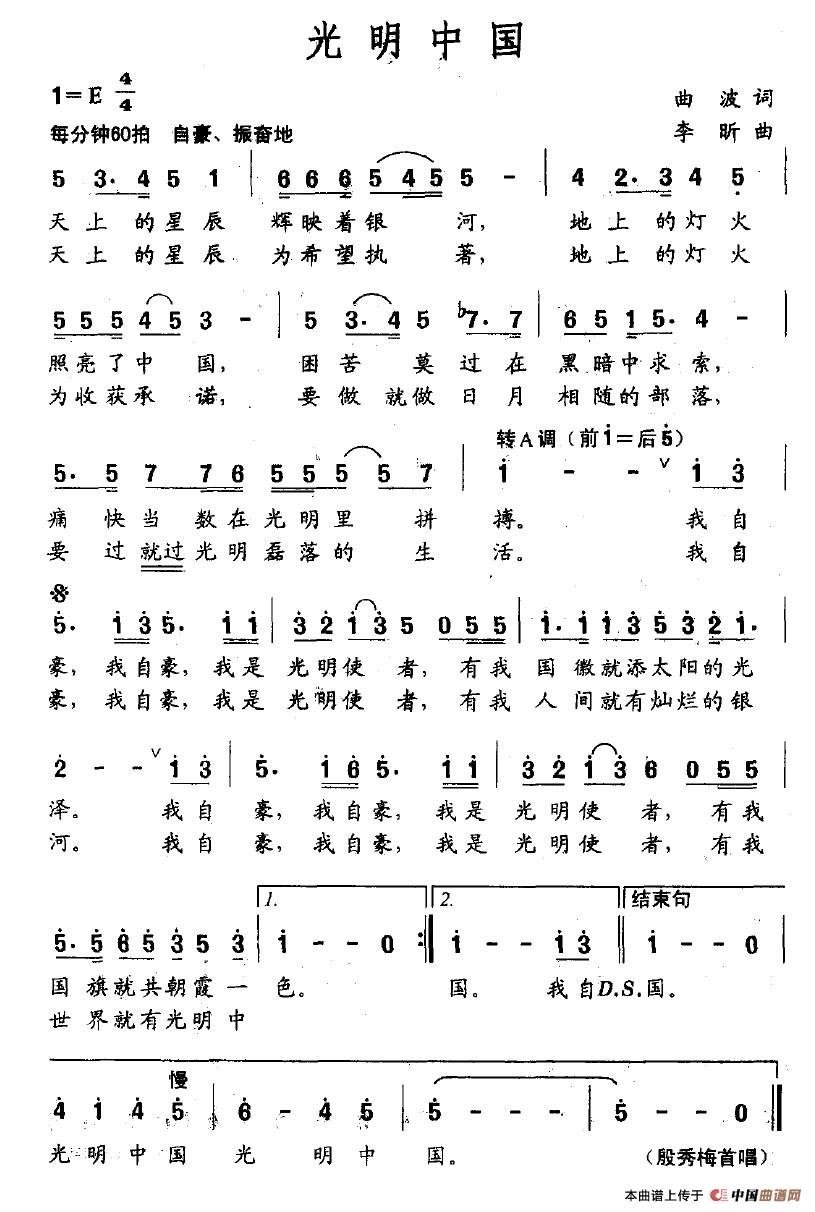 光明中国
1=E 4/4
曲波词
每分钟60拍 自豪、振奋地
李昕曲
5 3·4 5 1 | 6 6 6 6 5 4 5 5 - | 4 2·3 4 5 |
天上的星辰 辉映着银河, 地上的灯火
天上的星辰 为希望执著, 地上的灯火
5 5 5 4 5 3 - | 5 3·4 5 ♭7·7 | 6 5 1 5· 4 -
照亮了中国, 困苦莫过在黑暗中求索,
为收获承诺, 要做就做日月相随的部落,
转A调(前1=后5)
5· 5 7 7 6 | 5 5 5 5 5 7 | 1 - - ∨ 1 3
痛快当数在光明里拼搏。 我自
要过就过光明磊落的生活。 我自
5· 1 3 5· 1 1 | 3 2 1 3 5 0 5 5 | 1· 1 1 3 5 3 2 1· |
豪, 我自豪, 我是光明使者, 有我国徽就添太阳的光
豪, 我自豪, 我是光明使者, 有我人间就有灿烂的银
2 - - ∨ 1 3 | 5· 1 6 5· 1 1 | 3 2 1 3 6 0 5 5
泽。 我自豪, 我自豪, 我是光明使者, 有我
河。 我自豪, 我自豪, 我是光明使者, 有我
1. 2. 结束句
5· 5 6 5 3 5 3 | 1 - - 0 :‖ 1 - - 1 3 ‖ 1 - - 0
国旗就共朝霞一色。 国。 我自D.S.国。
世界就有光明中
慢
4 1 4 5 | 6 - 4 5 | 5 - - - | 5 - - 0 ‖
光明中国光明中国。 (殷秀梅首唱)
本曲谱上传于 中国曲谱网